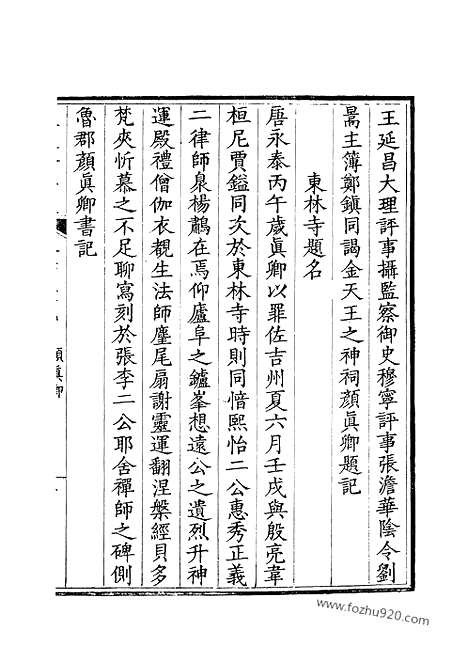 王延昌大理評事攝監察御史穆寧評事張澹華陰令劉
暠主簿鄭鎮同謁金天王之神祠顏眞卿題記
東林寺題名
唐永泰丙午歲眞卿以罪佐吉州夏六月壬戌與殷亮韋
桓尼賈鎰同次於東林寺時則同愔熙怡二公惠秀正義
二律師泉楊鷸在焉仰廬阜之鑪峯想遠公之遺烈升神
運殿禮僧伽衣覩生法師麈尾扇謝靈運翻涅槃經貝多
梵夾忻慕之不足聊寫刻於張李二公耶舍禪師之碑側
魯郡顏眞卿書記
顏眞卿
www.fozhu920.com